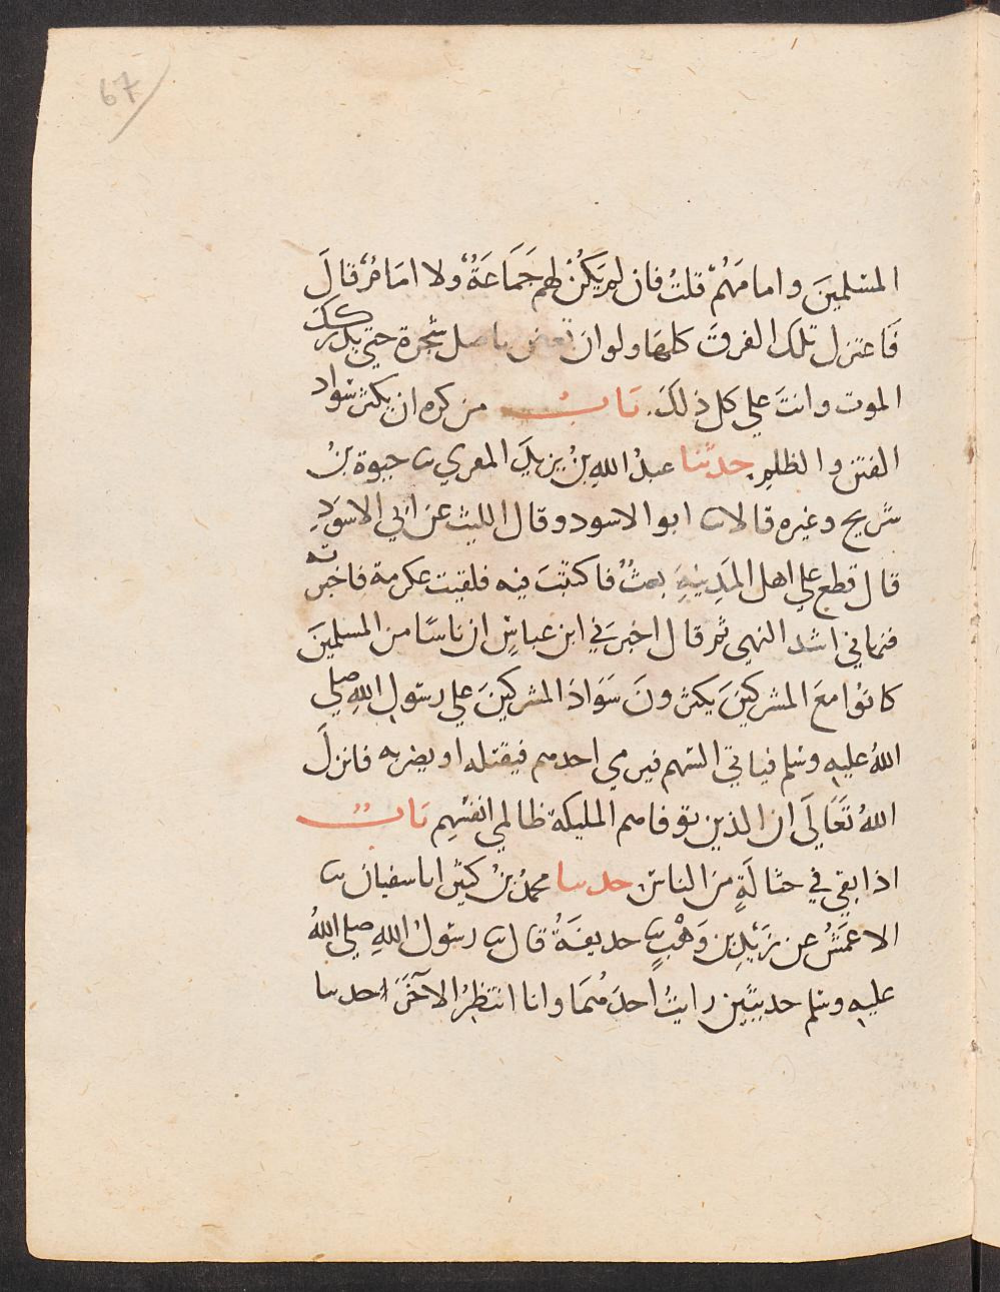 67
المسلمينَ وامامَهُمْ قلتُ فان لم يَكُنْ لهم جَمَاعَةٌ ولا امَامٌ قالَ
فَاعتزل تلكَ الفرقَ كلهَا ولو ان تعض باصل شجرة حتى يدرككَ
الموت وانتَ علي كل ذلكَ. بَابُ من كره ان يكثر سواد
الفتن والظلم حدثنا عبدُ اللهِ بنُ يزيدَ المقري ثنا حيوة بنُ
شريح وغيره قالا ثنا ابو الاسود وقال الليث عن ابي الاسوَدِ
قال قطع علي اهل المَدِينةِ بعثٌ فاكتتبَ فيه فلقيت عكرمة فاخبرته
فنهاني اشد النهي ثم قال اخبرَني ابن عباسٍ ان ناسًا من المسلمينَ
كانوُا معَ المشركينَ يكثرونَ سَوَادَ المشركينَ علي رسولِ اللهِ صلي
اللهُ عليه وسلم فياتي السهم فيرمي احدهم فيقتله او يضربه فانزلَ
اللهُ تَعَاليَ ان الذين توفاهم المليكة ظالمي انفسِهِم بَابٌ
اذا بقي في حثالَةٍ من الناس حدثنا محمدُ بنُ كثير انا سفيان ثنا
الاعمَشُ عن زَيْدِ بن وَهْبٍ ثنا حذيفَةُ قال ثنا رسولُ اللهِ صلي اللهُ
عليه وسلم حديثين رايتُ أحدَهُمَا وانا انتظِرُ الاخَرَ حدثنا